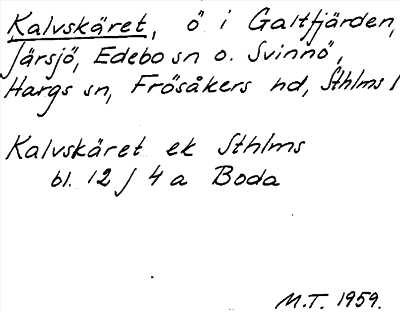 Kalvskäret, ö i Galtfjärden,
Järsjö, Edebo sn o. Svinnö,
Hargs sn, Frösåkers hd, Sthlms l
Kalvskäret ek Sthlms
bl. 12 J 4 a Boda
M.T. 1959.